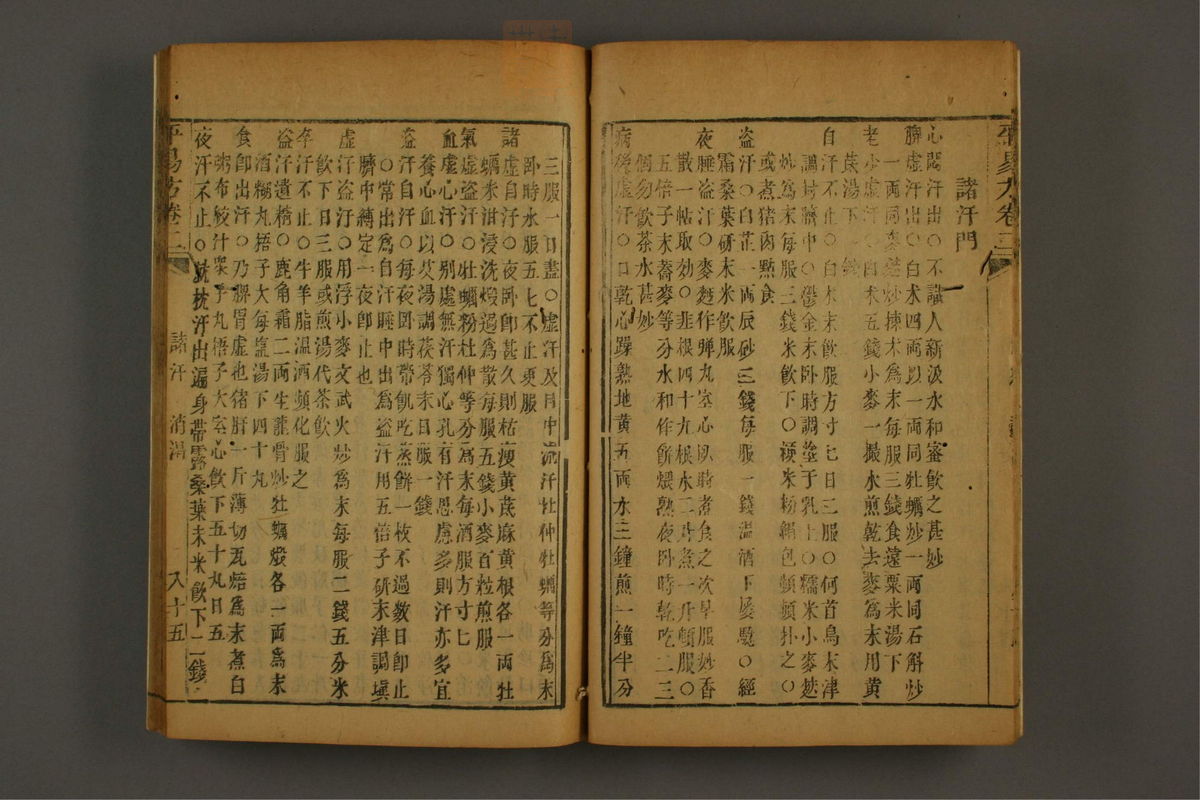 諸汗門
心悶汗出○不識人新汲水和蜜飲之甚妙
脾虛汗出○白朮四兩以一兩同牡蠣炒一兩同石斛炒
一兩同麥麩炒揀朮為末每服三錢食遠粟米湯下
老小虛汗○白朮五錢小麥一撮水煎乾去麥為末用黃
芪湯下一錢
自汗不止○白朮末飲服方寸匕日三服○何首烏末津
調封臍中○鬱金末卧時調塗于乳上○糯米小麥麩
炒為末每服三錢米飲下○粳米粉絹包頻頻扑之○
或煮猪肉點食
盜汗○白芷一兩辰砂三錢每服一錢温酒下屢驗○經
霜桑葉研末米飲服
夜睡盜汗○麥麪作彈丸空心臥時煮食之次早服妙香
散一帖取効○韭根四十九根水二升煮一升頓服○
五倍子末蕎麥等分水和作餅煨熟夜卧時乾吃二三
個勿飲茶水甚妙
病後虛汗○口乾心躁熟地黃五兩水三鐘煎一鐘半分
三服一日盡○虛汗及目中流汗杜仲牡蠣等分為末
卧時水服五匕不止更服
諸虛自汗○夜卧即甚久則枯瘦黃芪麻黃根各一兩牡
蠣米泔浸洗煅過為散每服五錢小麥百粒煎服
氣虛盜汗○牡蠣粉杜仲等分為末每酒服方寸匕
血虛心汗○别處無汗獨心孔有汗思慮多則汗亦多宜
養心血以艾湯調茯苓末日服一錢
盜汗自汗○每夜卧時帶飢吃蒸餅一枚不過數日即止
○常出為自汗睡中出為盜汗用五倍子研末津調填
臍中縛定一夜即止也
虛汗盜汗○用浮小麥文武火炒為末每服二錢五分米
飲下日三服或煎湯代茶飲
卒汗不止○牛羊脂温酒頻化服之
盜汗遺精○鹿角霜二兩生龍骨炒牡蠣煅各一兩為末
酒糊丸梧子大每塩湯下四十丸
食即出汗○乃脾胃虛也猪肝一斤薄切瓦焙為末煮白
粥布絞汁衆手丸梧子大空心飲下五十丸日五
夜汗不止○就枕汗出遍身帶露桑葉末米飲下二錢
諸汗 消渴 八十五